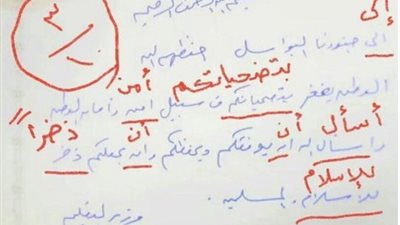 بسم الله الرحمن الرحيم
إلى
٣/١٠
الى جنودنا البواسل حفظهم الله
بتضحياتكم أمن
الوطن يفخر بتضحياتكم في سبيل امن وامان الوطن
أسأل أن أن ذخراً
واسال الله ان يوفقكم ويحفظكم وان يجعلكم ذخر
للإسلام
للاسلام والمسلمين.
وزير التعليم